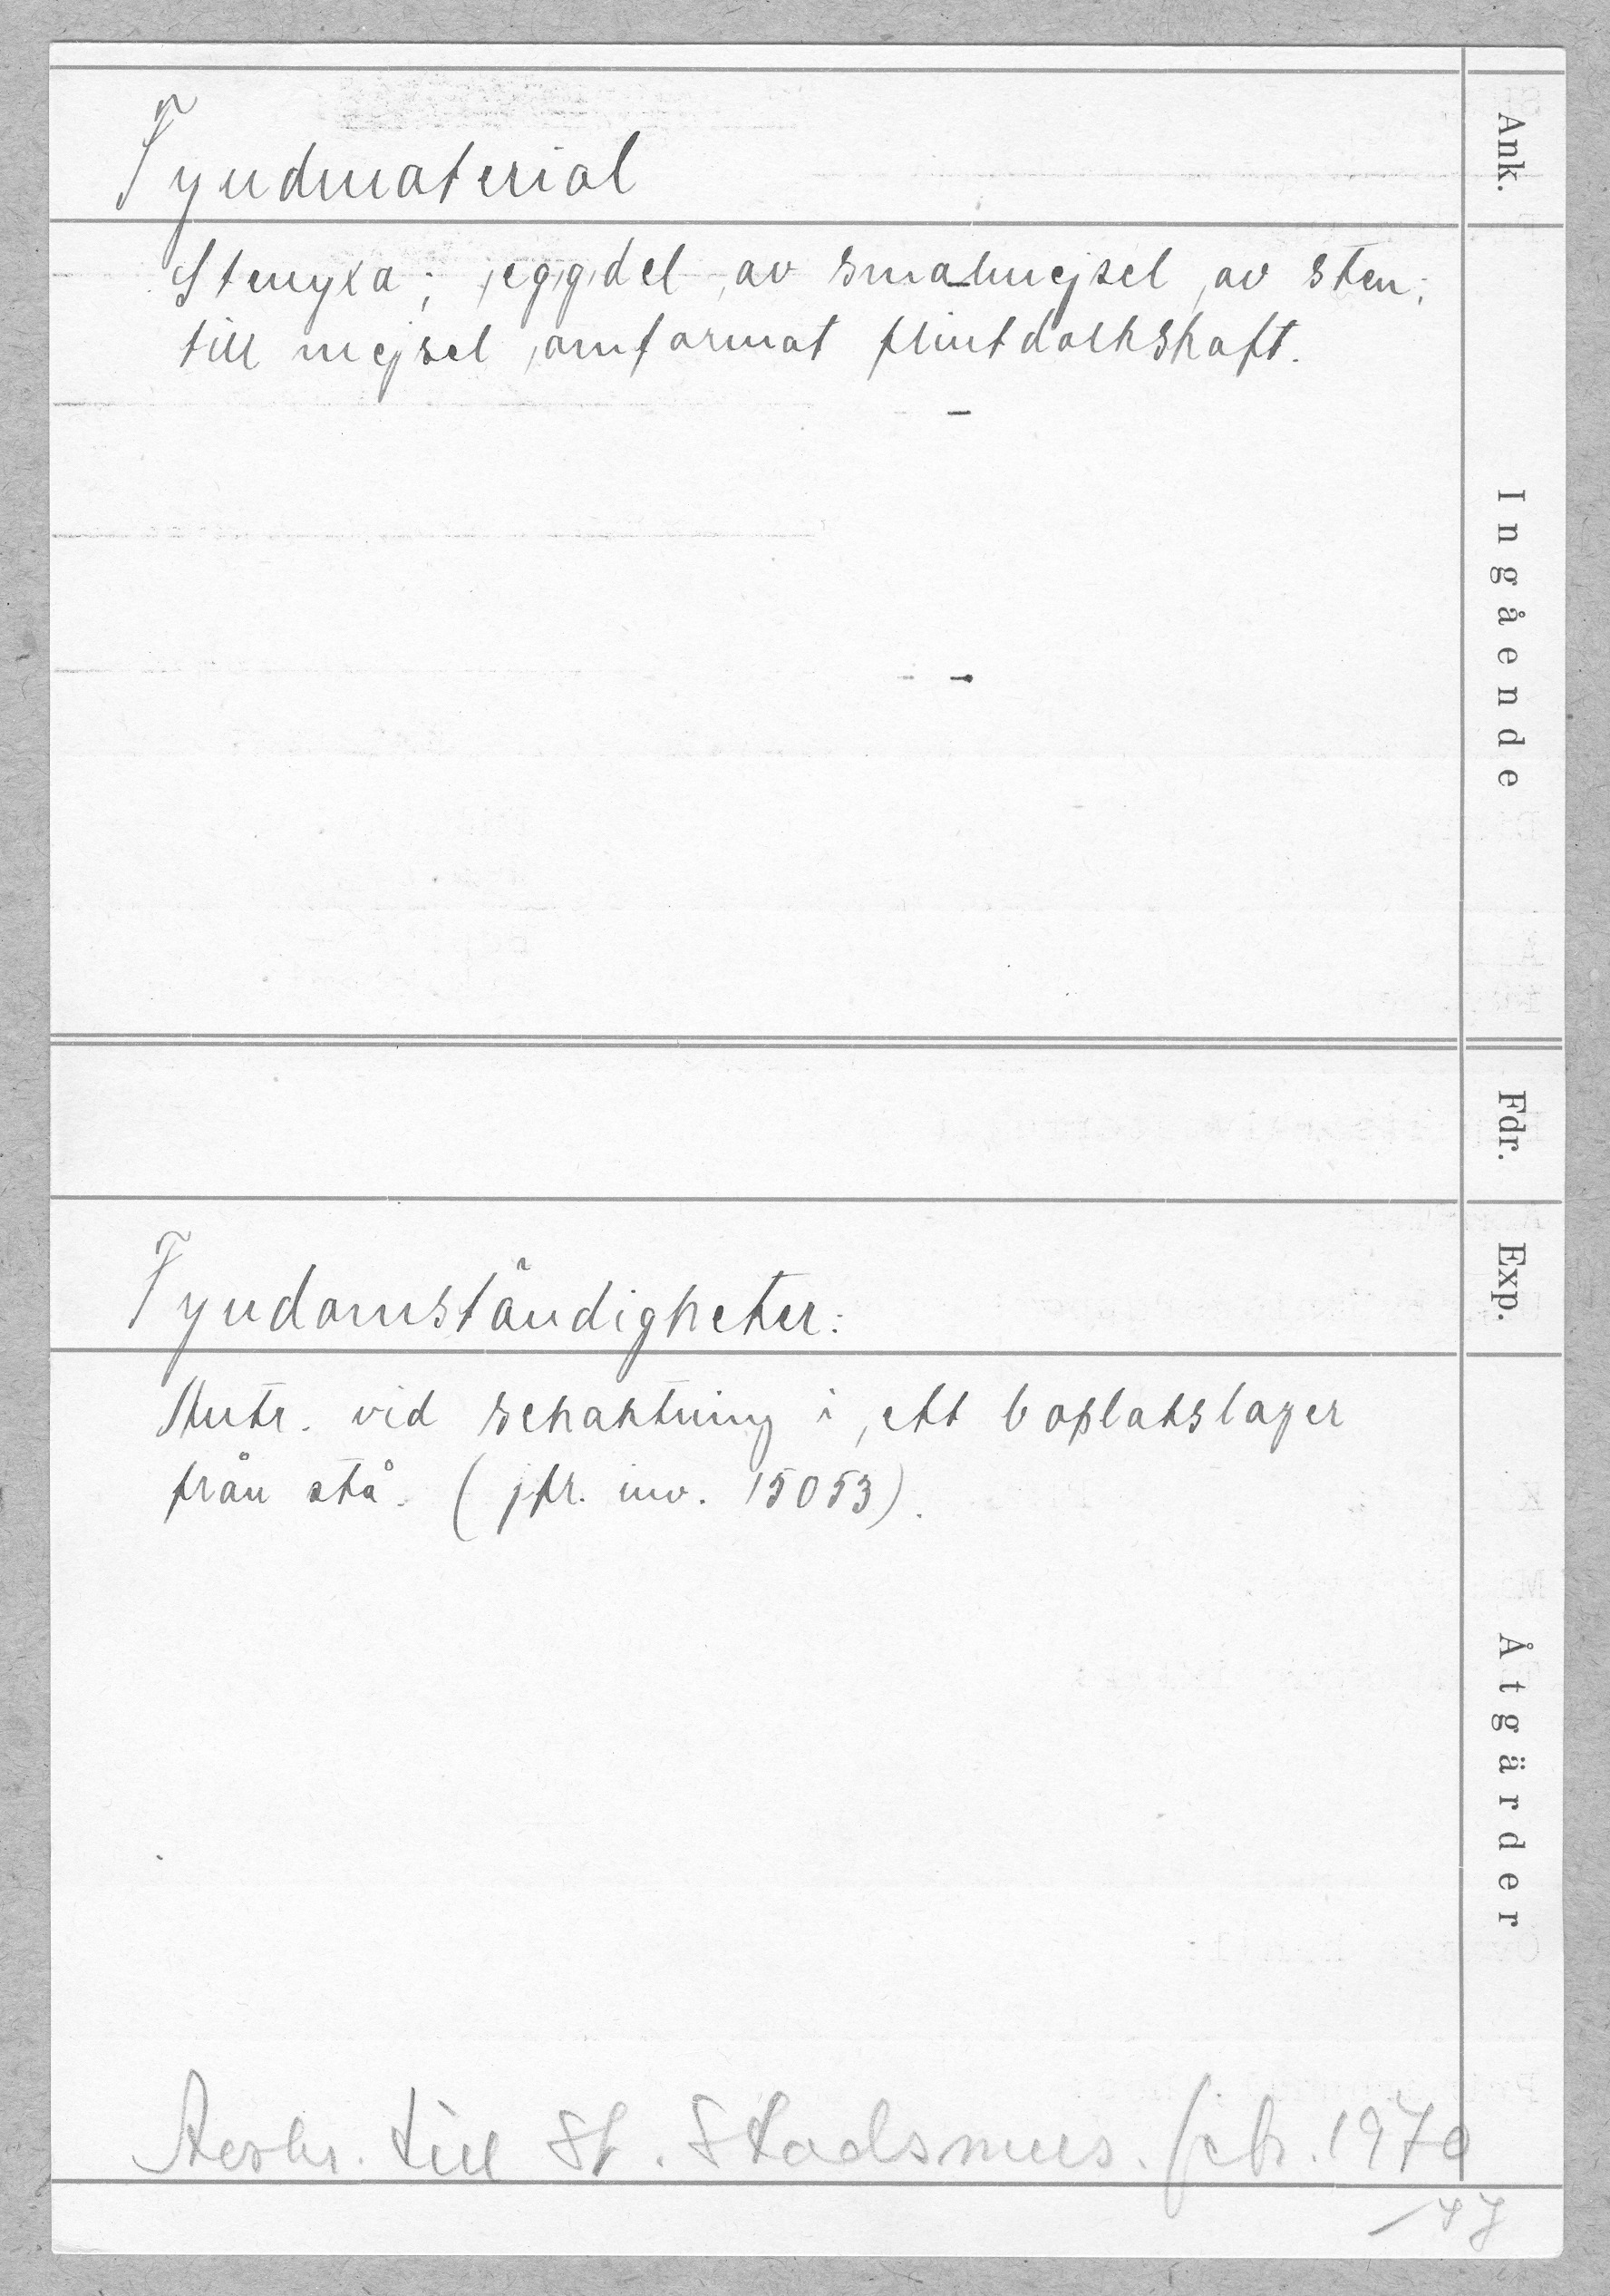 Ank.
Fyndmaterial
Stenyxa; eggdel av smalmejsel av sten;
till mejsel omformat flintdolkskaft.
Ingående
Fdr.
Exp.
Fyndomständigheter:
vid schaktning i ett boplatslager
från stå. (jfr. inv. 15053).
Åtgärder
till St. Stadsmus. febr. 1970